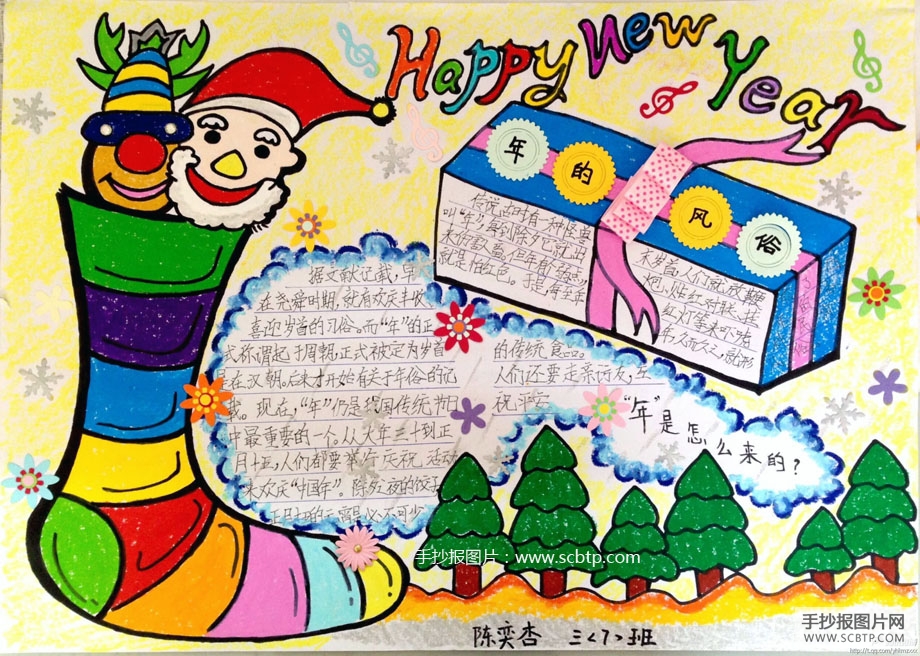 Happy New Year
年的风俗
传说古时有一种怪兽
叫“年”,每到除夕它就出
来伤害人畜。但年有弱点,
就是怕红色。于是每年年
末岁首,人们就放鞭
炮、贴红对联、挂
红灯等来吓唬
年。久而久之,就形
据文献记载,早
在尧舜时期,就有欢庆丰收
喜迎岁首的习俗。而“年”的正
式称谓起于周朝,正式被定为岁首
是在汉朝。后来才开始有关于年俗的记
载。现在,“年”仍是我国传统节日
中最重要的一个。从大年三十到正
月十五,人们都要举行庆祝活动
来欢庆“中国年”。除夕夜的饺子
正月初的元宵是必不可少
的传统食品。
人们还要走亲访友,互
祝平安
“年”是怎么来的?
手抄报图片:www.scbtp.com
陈奕杏 三<7>班
手抄报图片网
WWW.SCBTP.COM